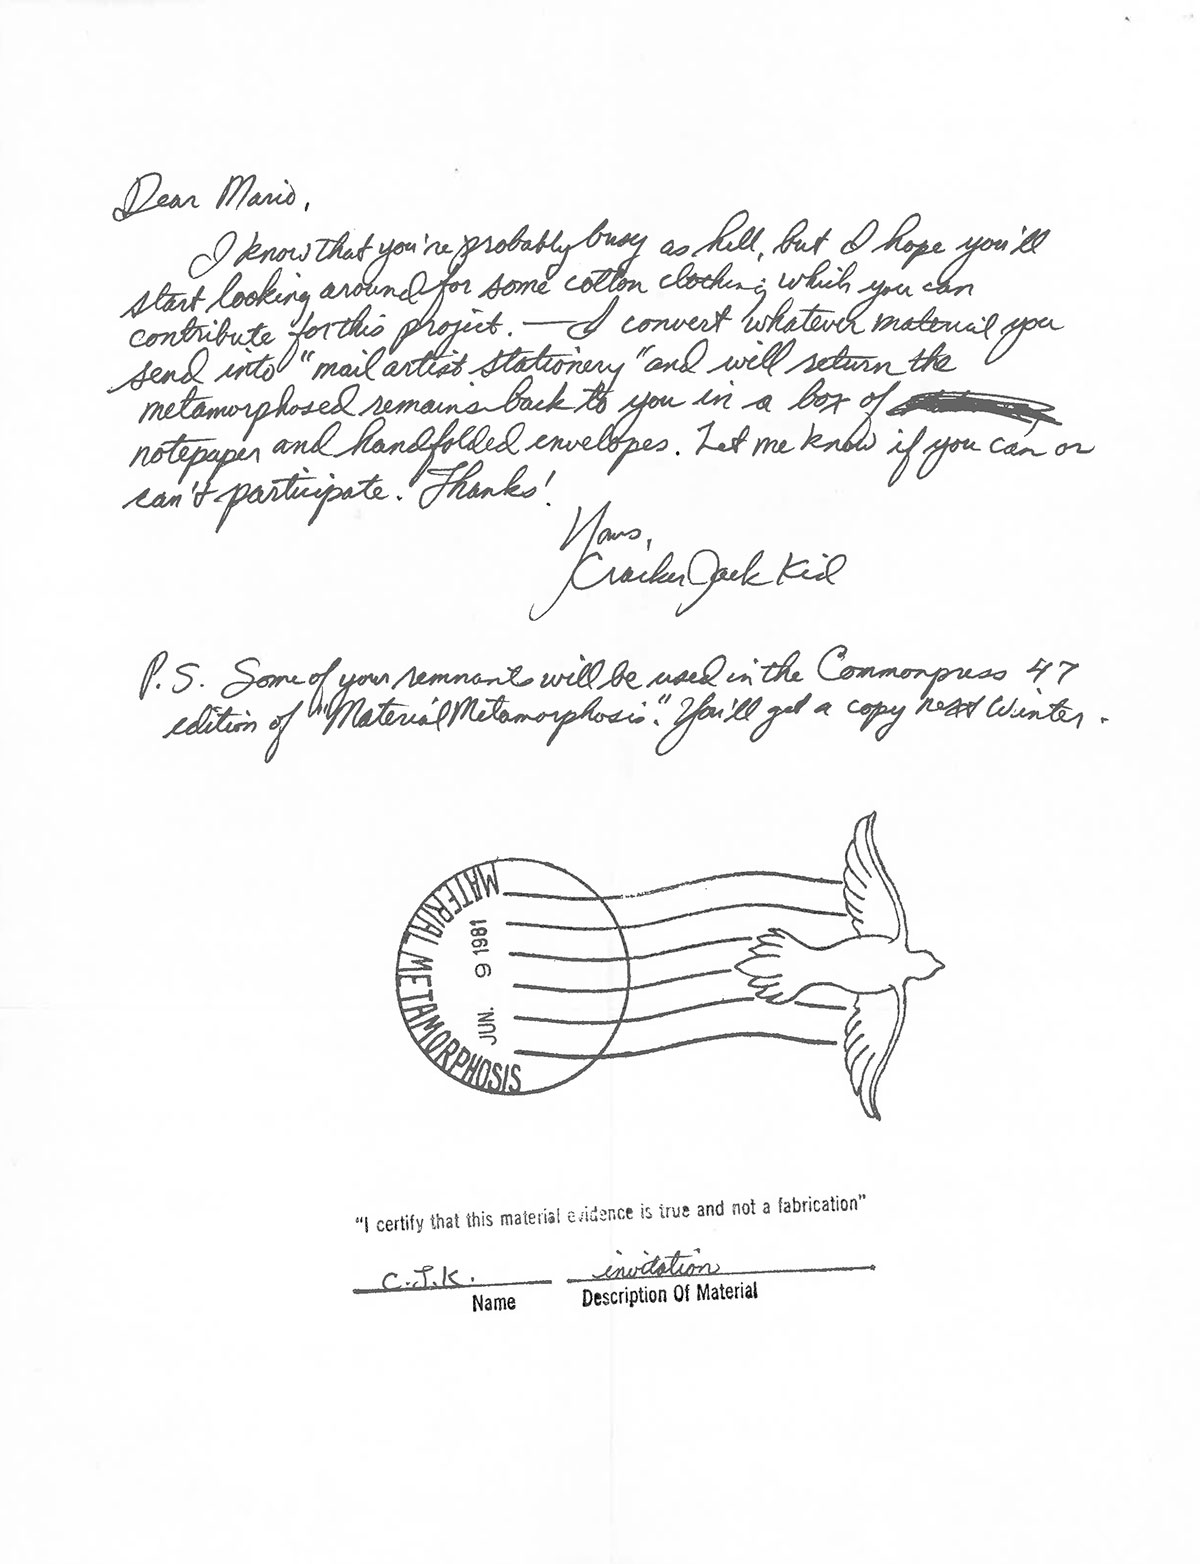 Dear Mario,
I know that you're probably busy as hell, but I hope you'll
start looking around for some cotton clothing which you can
contribute for this project. — I convert whatever material you
send into "mail artist stationery" and will return the
metamorphosed remains back to you in a box of
notepaper and handfolded envelopes. Let me know if you can or
can't participate. Thanks!
Yours,
Cracker Jack Kid
P.S. Some of your remnants will be used in the Commonpress 47
edition of "Material Metamorphosis". You'll get a copy next Winter.
MATERIAL METAMORPHOSIS
JUN. 9 1981
"I certify that this material evidence is true and not a fabrication"
C.J.K. invitation
Name Description Of Material